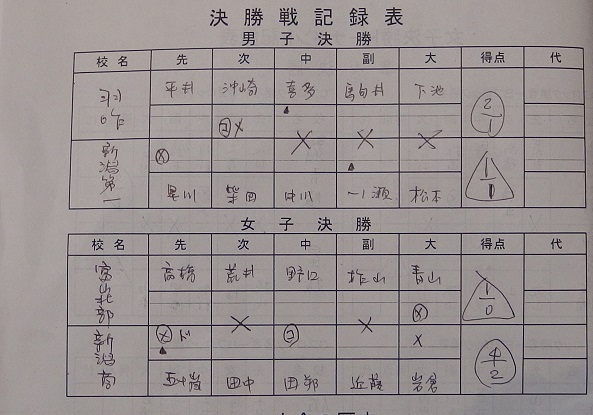 決勝戦記録表
男子決勝
校名 先 次 中 副 大 得点 代
羽咋 平井 沖崎 喜多 駒井 下池 2/1
コメ
新潟第一 メ 1/1
早川 柴田 中川 一ノ瀬 松本
女子決勝
校名 先 次 中 副 大 得点 代
富山北部 高橋 荒井 野口 柞山 青山 1/0
メ
新潟商 メド コ メ 4/2
五十嵐 田中 田郷 近藤 岩倉